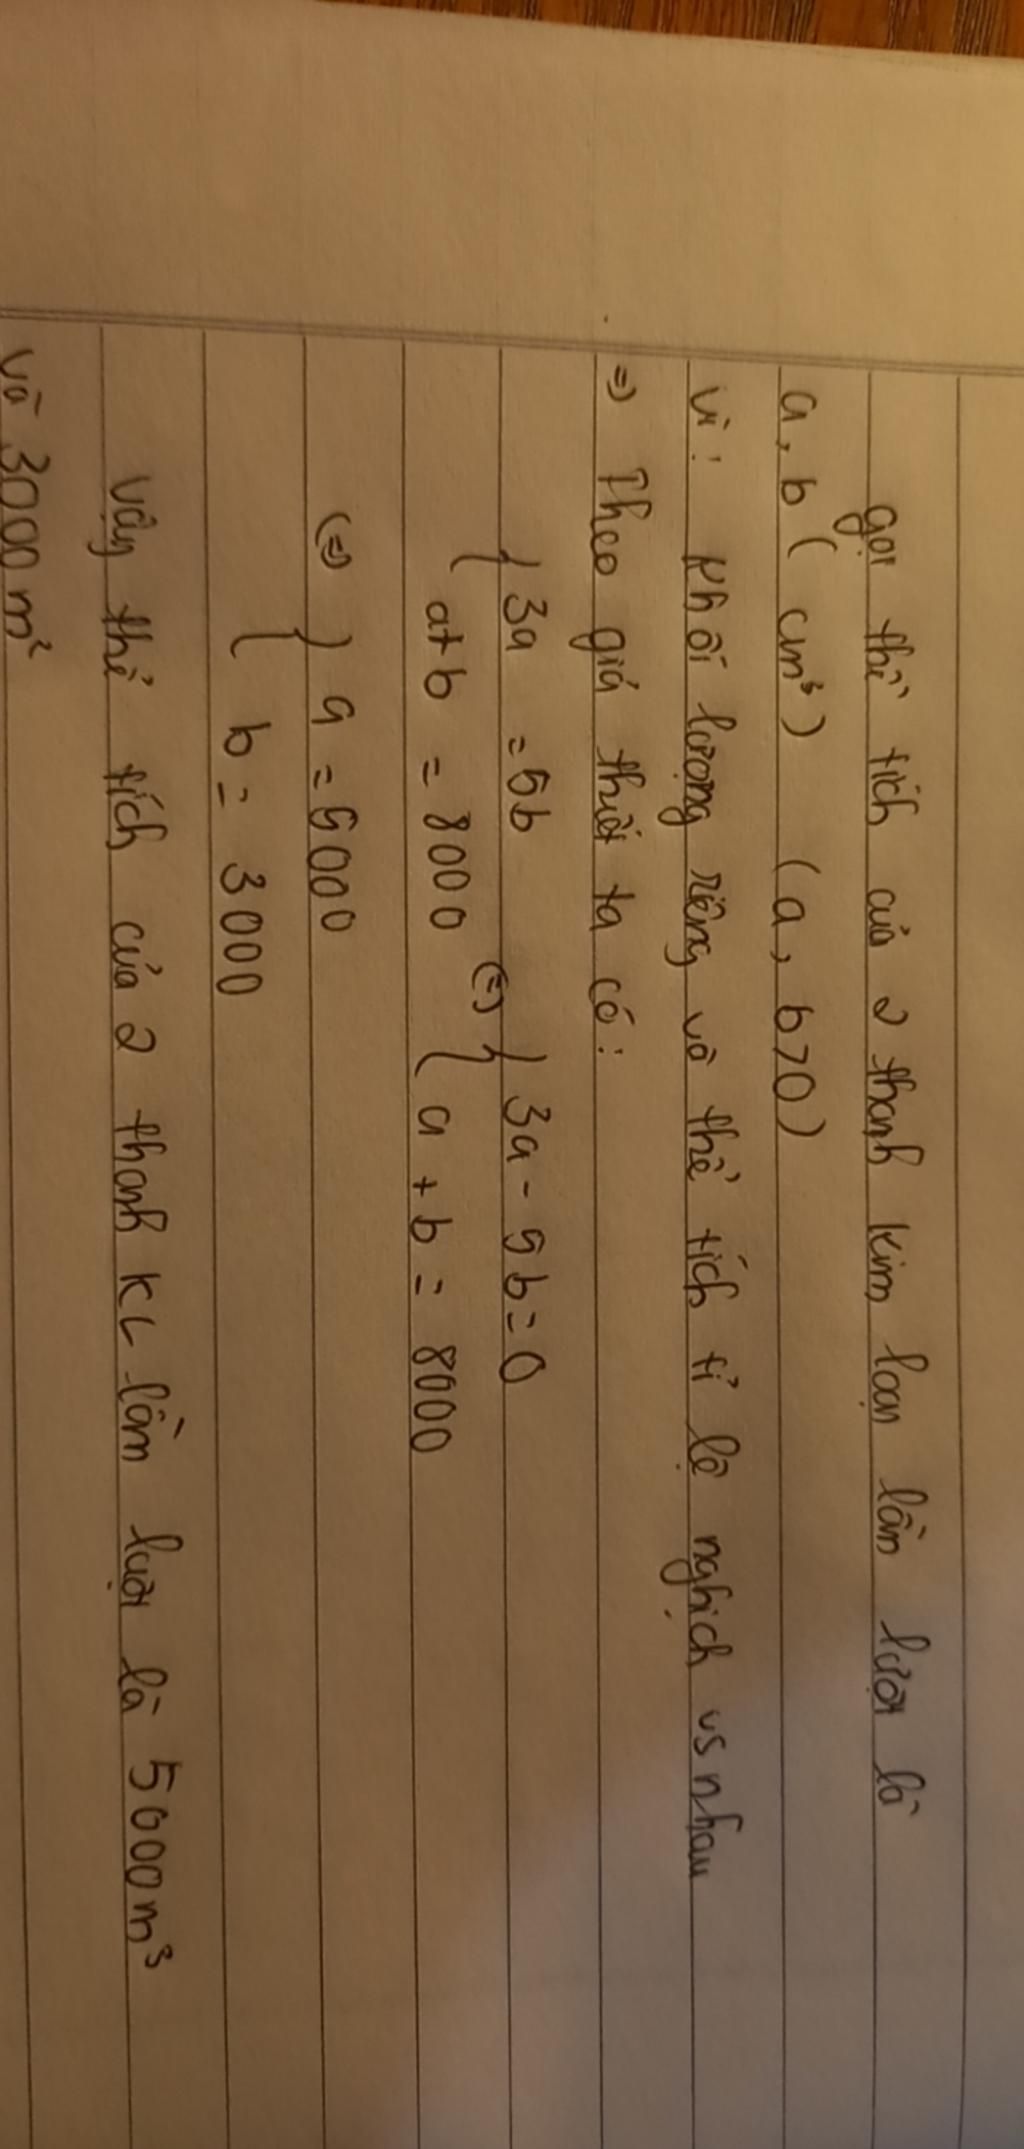 gọi thể tích của 2 thanh kim loại lần lượt là
a, b ( cm³ ) ( a, b > 0 )
Vì : khối lượng riêng và thể tích tỉ lệ nghịch vs nhau
=> Theo giả thiết ta có :
{ 3a = 5b
a + b = 8000 (=) { 3a - 5b = 0
a + b = 8000
(=) { a = 5000
b = 3000
Vậy thể tích của 2 thanh KL lần lượt là 5000 m³
và 3000 m²